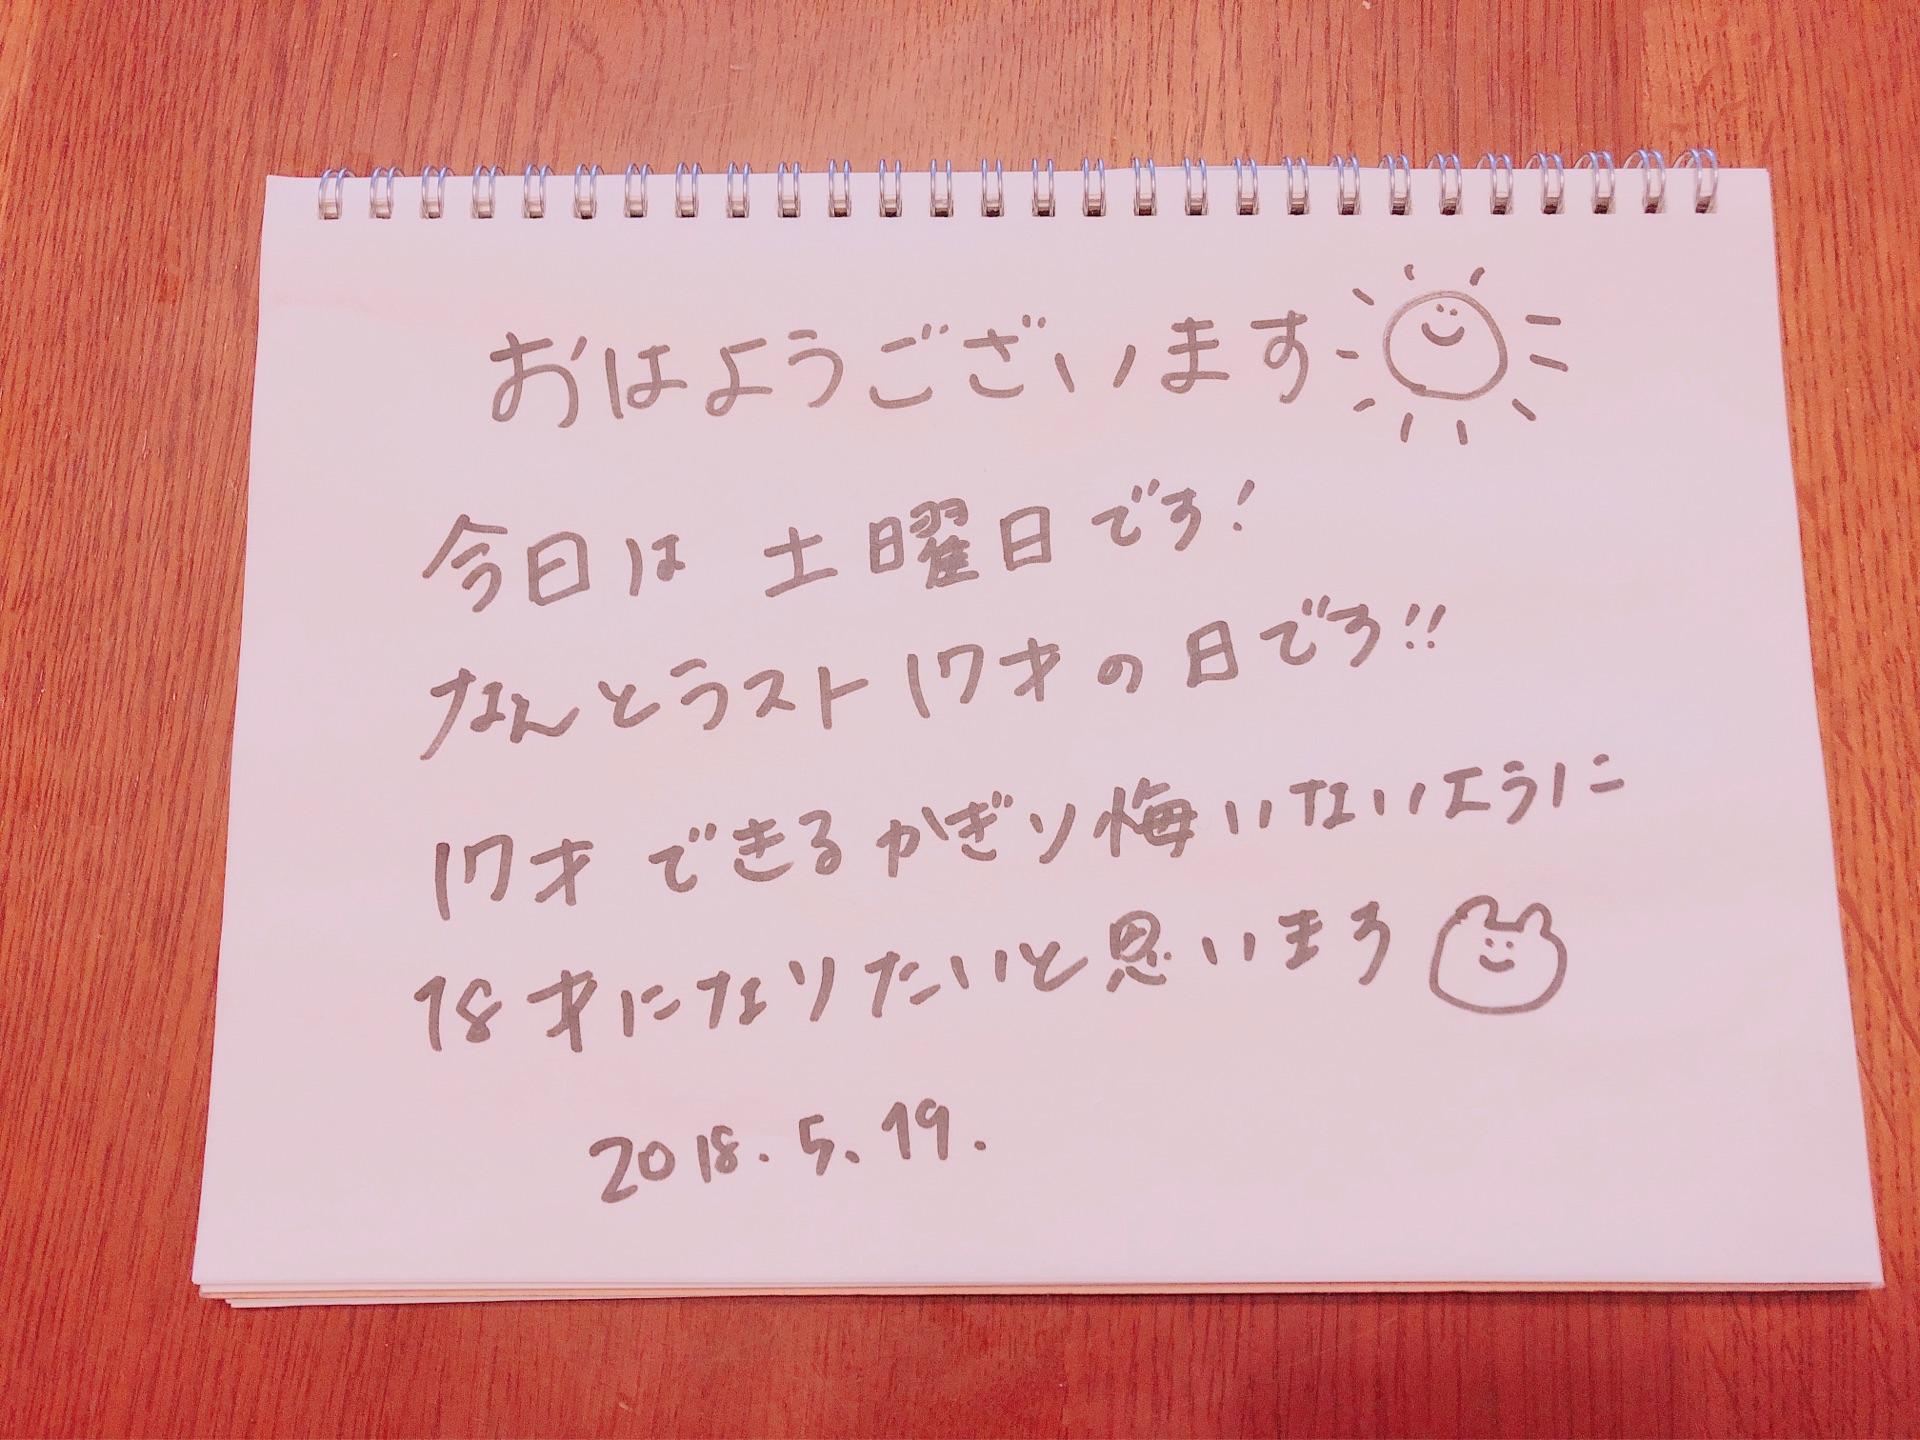 おはようございます
今日は 土曜日です!
なんとラスト17才の日です!!
17才 できるかぎり悔いないように
18才になりたいと思います
2018.5.19.